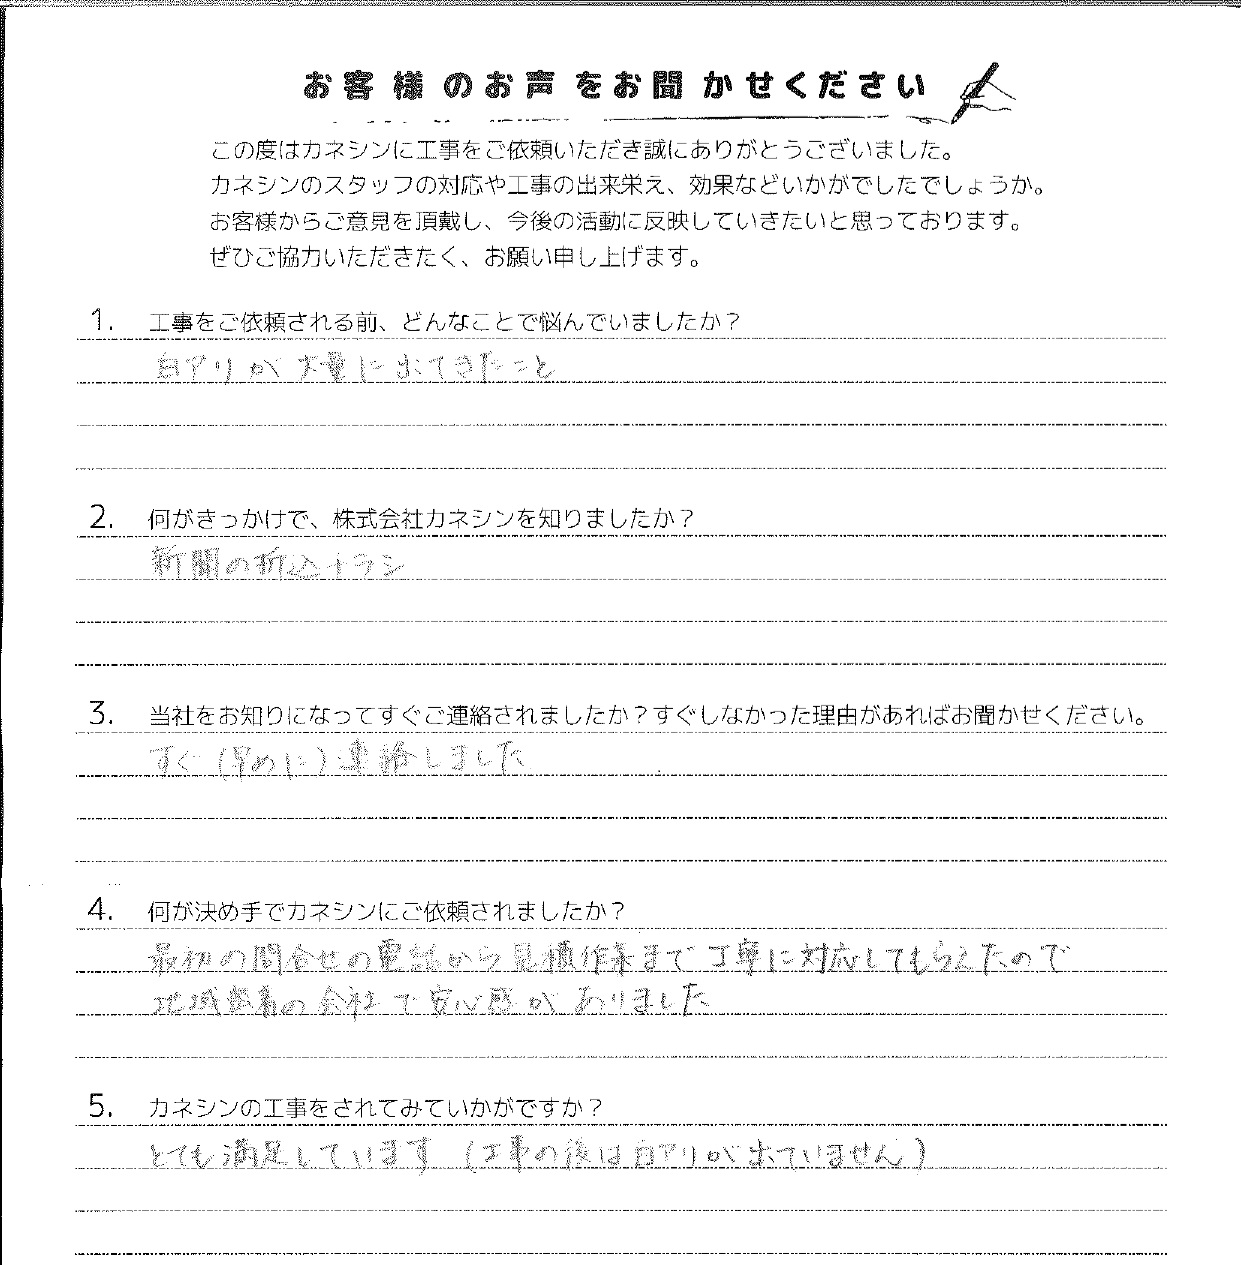 お客様のお声をお聞かせください
この度はカネシンに工事をご依頼いただき誠にありがとうございました。
カネシンのスタッフの対応や工事の出来栄え、効果などいかがでしたでしょうか。
お客様からご意見を頂戴し、今後の活動に反映していきたいと思っております。
ぜひご協力いただきたく、お願い申し上げます。
1. 工事をご依頼される前、どんなことで悩んでいましたか？
白アリが大量に出てきたこと
2. 何がきっかけで、株式会社カネシンを知りましたか？
新聞の折込チラシ
3. 当社をお知りになってすぐご連絡されましたか？すぐしなかった理由があればお聞かせください。
すぐ（早めに）連絡しました
4. 何が決め手でカネシンにご依頼されましたか？
最初の問合せの電話から見積作業まで丁寧に対応してもらえたので
地域密着の会社で安心感がありました
5. カネシンの工事をされてみていかがですか？
とても満足しています（工事の後は白アリが出ていません）